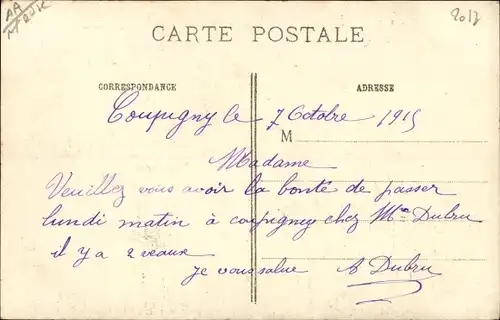 2017
CARTE POSTALE
CORRESPONDANCE
ADRESSE
Coupigny le 7 Octobre 1915
M
Madame
Veuillez vous avoir la bonté de passer
lundi matin à coupigney chez Mme Dubru
il y a 2 veaux
je vous salue A Dubru